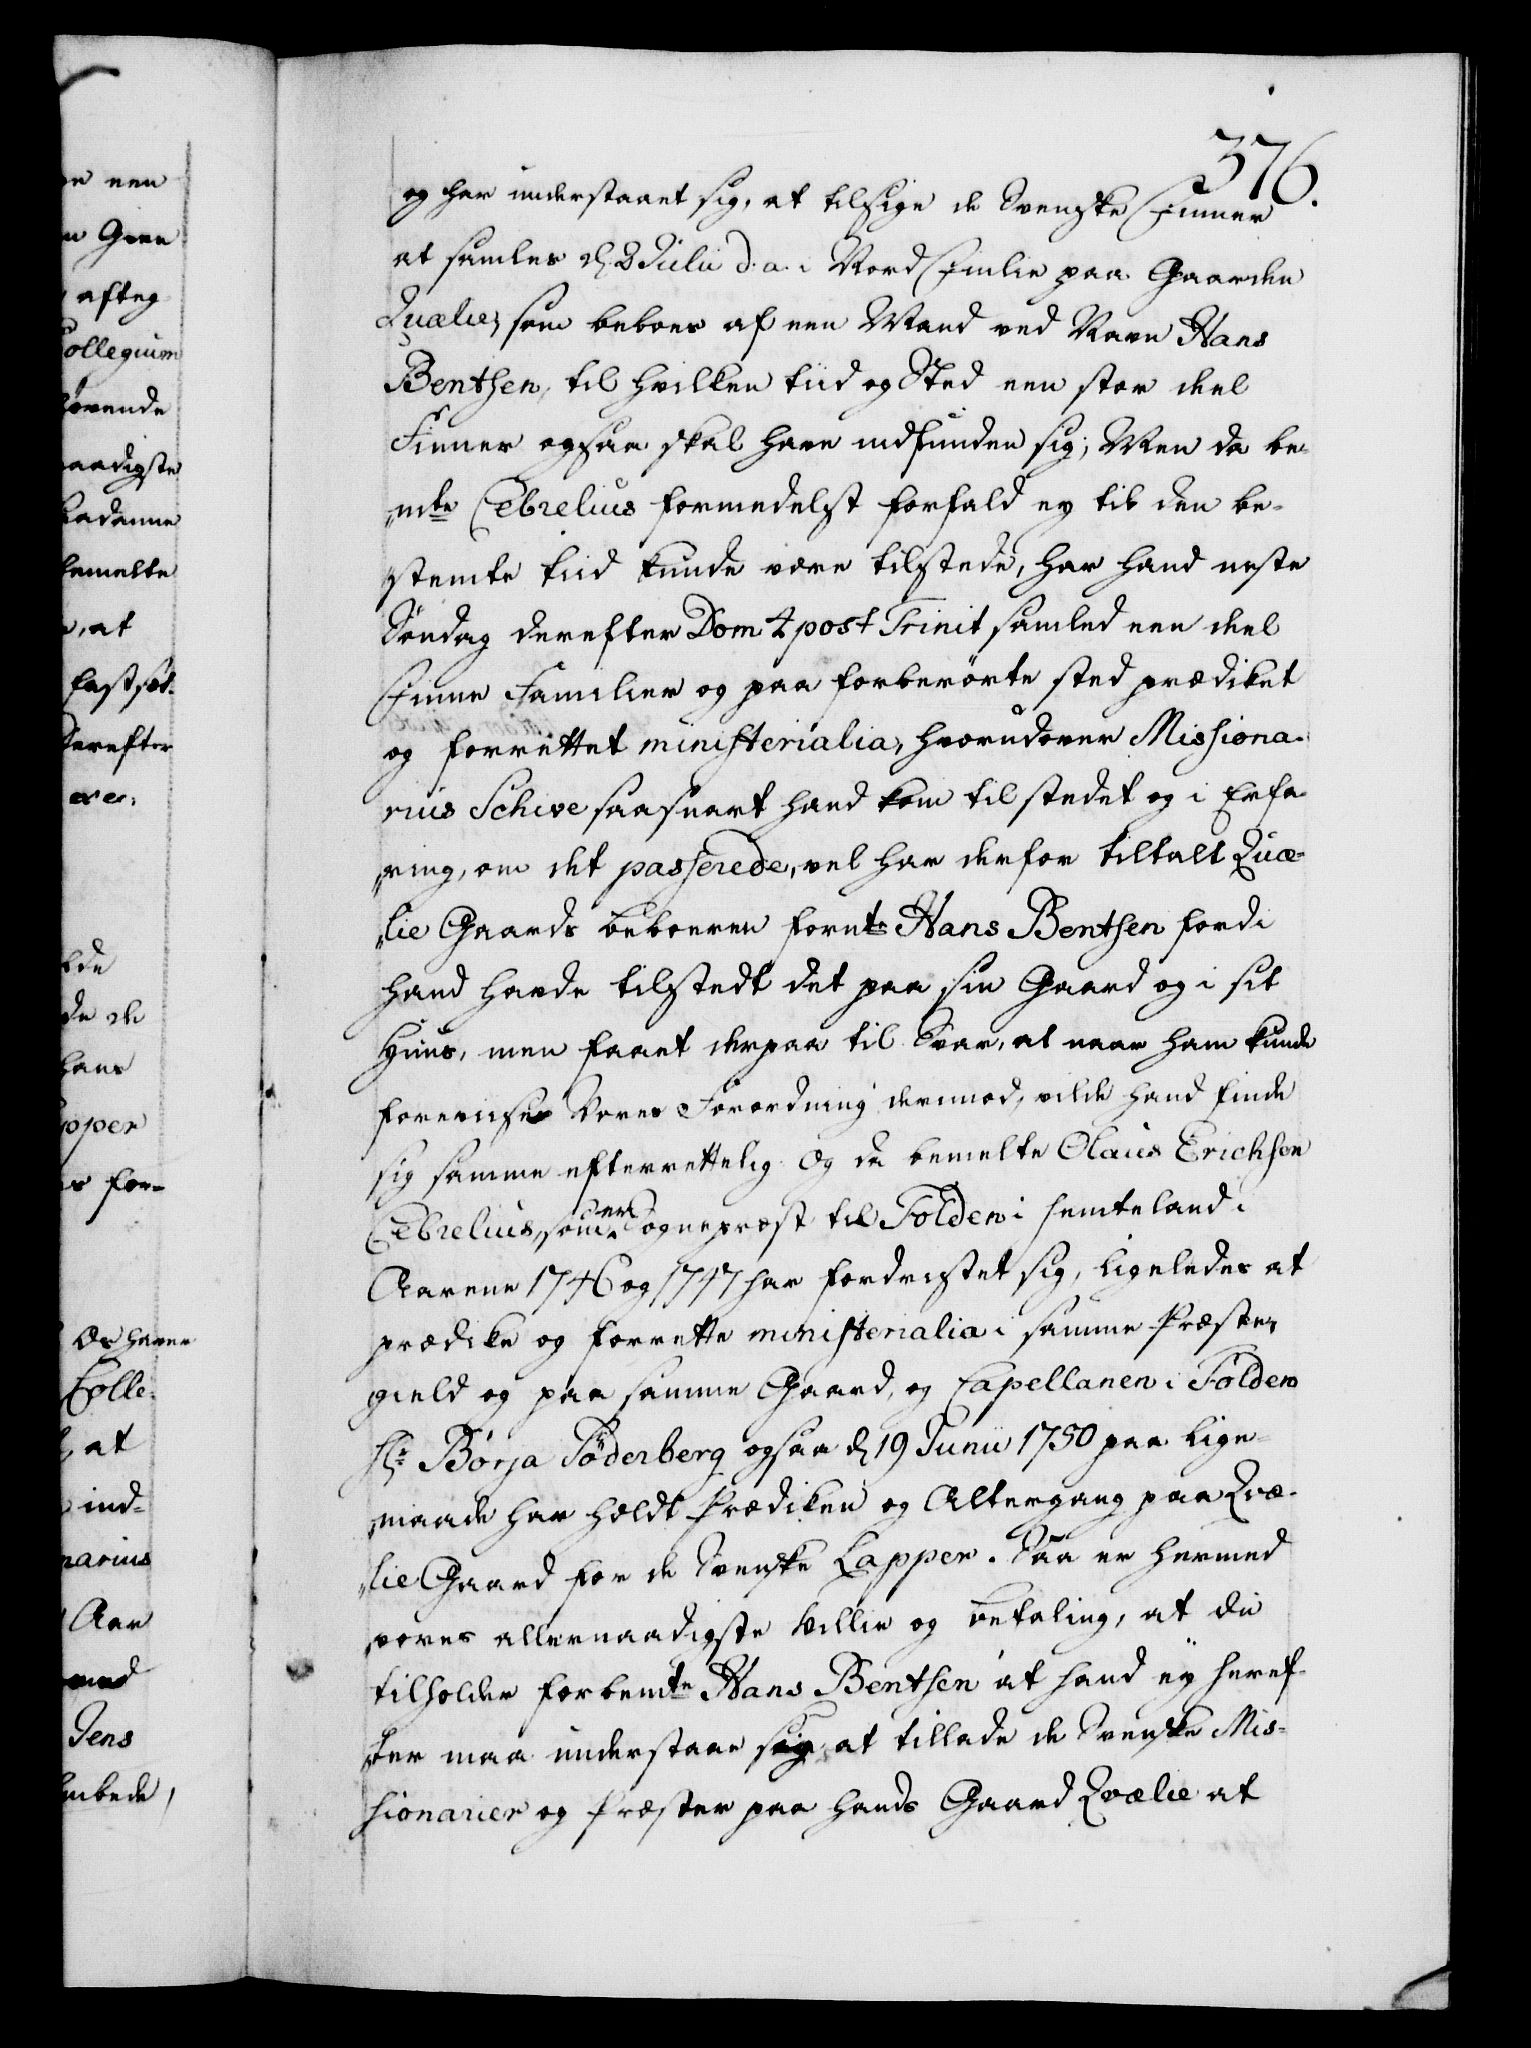 376.
og har understaaet sig, at tilsige de Svenske Finner
at samles d. 8 Julii d: a: i Nord Finlie paa Gaarden
Quælie, som beboes af een Mand ved Navn Hans
Bentsen, til hvilken tiid og Sted een stor deel
Finner ogsaa skal have indfunden sig; Men da be-
mte Cebrelius formedelst forfald ey til den be-
stemte tiid kunde være tilstede, har hand neste
Søndag derefter Dom 4 post Trinit samled een deel
Finne Familier og paa forberørte sted prædiket
og forrettet ministerialia, hvorudover Missiona-
rius Schive saasnart hand kom til stedet og i Erfa-
ring, om det passerede, vel har derfor tiltalt Quæ-
lie Gaards beboeren fornte Hans Bentsen fordi
hand hafde tilstedt det paa sin Gaard og i sit
Huus, men faaet derpaa til Svar, at naar ham kunde
foreviises Vores Forordning derimod, vilde hand finde
sig samme efterrettelig. Og da bemelte Olaus Erichsen
Cebrelius, som er Sognepræst til Følden i Jemteland i
Aarene 1746 og 1747 har fordristet sig, ligeledes at
prædike og forrette ministerialia i samme Præste-
gield og paa samme Gaard, og Capellanen i Følden
Hr Börja Föderberg ogsaa d. 19 Junii 1750 paa lige-
maade har holdt Prædiken og Altergang paa Qvæ-
lie Gaard for de Svenske Lapper. Saa er hermed
vores allernaadigste Villie og Befaling, at du
tilholder forbemte Hans Bentsen at hand ey heref-
ter maa understaae sig, at tillade de Svenske Mis-
sionarier og Præster paa hands Gaard Qvælie at
een
Gien
afteg
Collegium
naadigste
Sadanne
bemelte
at
fastsæt-
derefter
de
hans
apper
for-
Os haver
Colle-
at
ind-
narius
Aar
med
Jens
Embede,